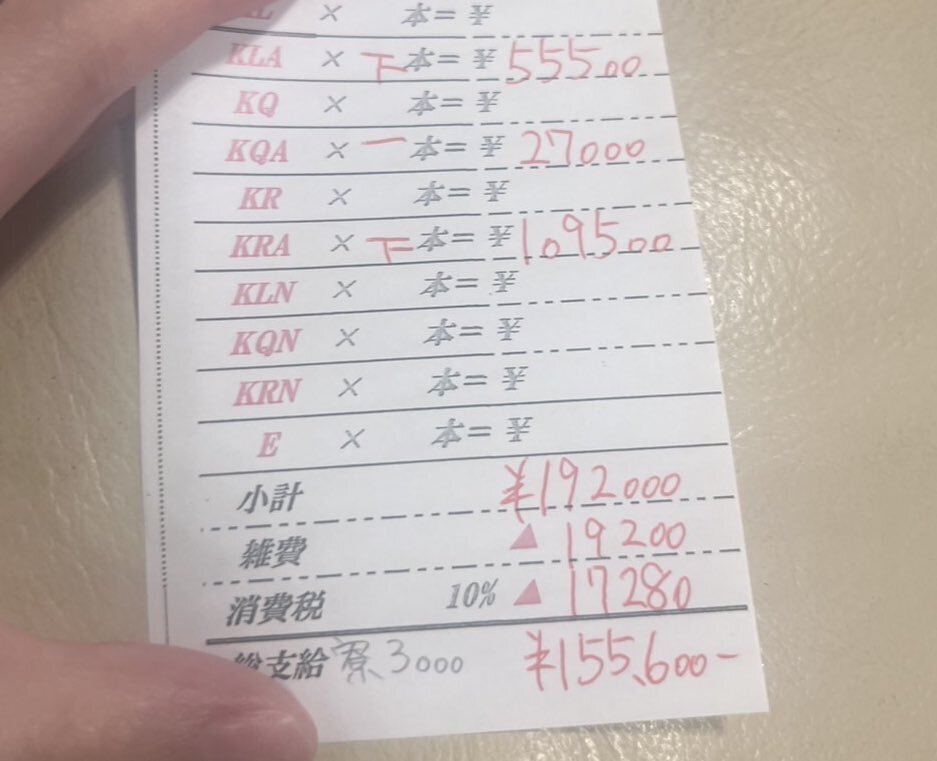 L × 本=¥
KLA × 下 本=¥ 55500
KQ × 本=¥
KQA × 一 本=¥ 27000
KR × 本=¥
KRA × 下 本=¥ 109500
KLN × 本=¥
KQN × 本=¥
KRN × 本=¥
E × 本=¥
小計 ¥192000
雑費 ▲ 19200
消費税 10% ▲ 17280
総支給 寮3000 ¥155,600-